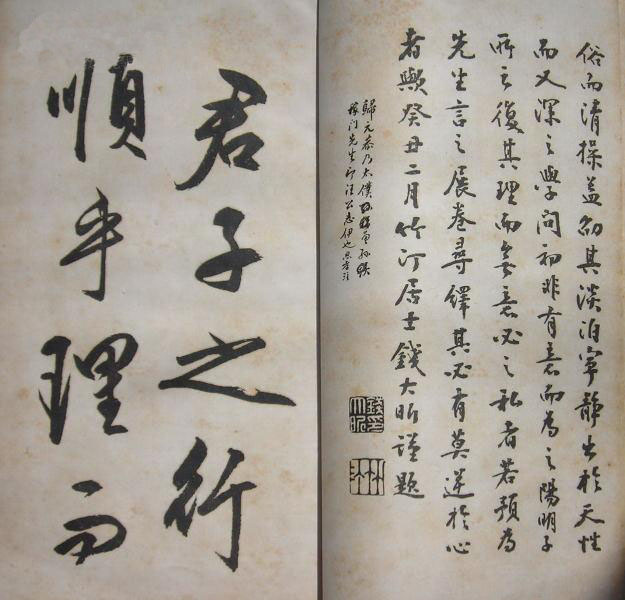 俗而清操蓋勵其淡泊寧靜出於天性
而又深之學問初非有意而為之陽明子
所云復其理而無意必之私者若預為
先生言之展卷尋繹其必有莫逆於心
者歟癸丑二月竹汀居士錢大昕謹題
歸元恭乃太僕孫
稼門先生即汪公志伊也
錢大昕印
竹汀
君子之行
順乎理而